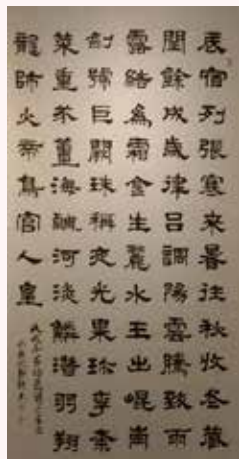 辰宿列張寒来暑往秋收冬藏
閏餘成歲律吕調陽雲騰致雨
露結為霜金生麗水玉出崐崗
劍號巨闕珠稱夜光果珍李柰
菜重芥薑海鹹河淡鱗潛羽翔
龍師火帝鳥官人皇